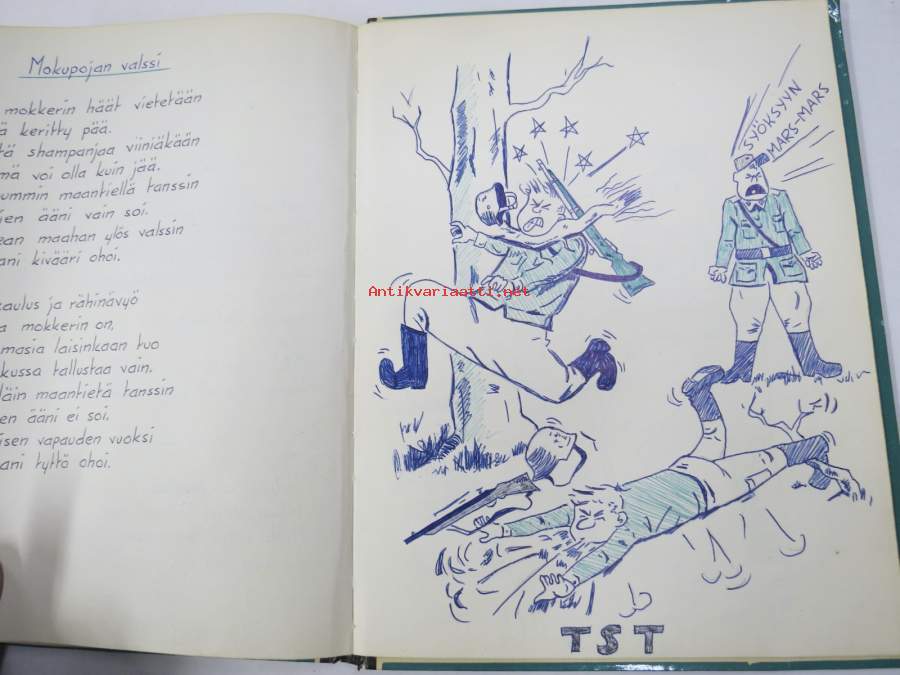 Mokupojan valssi
mokkerin häät vietetään
ä keritty pää.
tä shampanjaa viiniäkään
mä voi olla kuin jää.
ummin maantiellä tanssin
ien ääni vain soi.
kaan maahan ylös valssin
ani kivääri ohoi.
kaulus ja rähinävyö
a mokkerin on,
masia laisinkaan tuo
kussa tallustaa vain.
läin maantietä tanssin
en ääni ei soi.
isen vapauden vuoksi
ani tyttö ohoi.
SYÖKSYYN
MARS-MARS
Antikvariaatti.net
TST